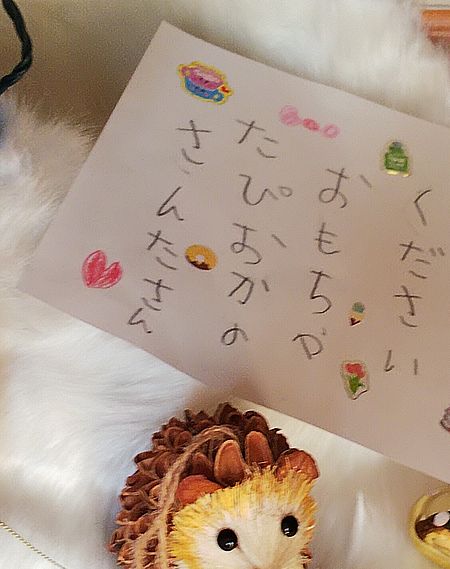 さんたさん
たぴおかの
おもちゃ
ください